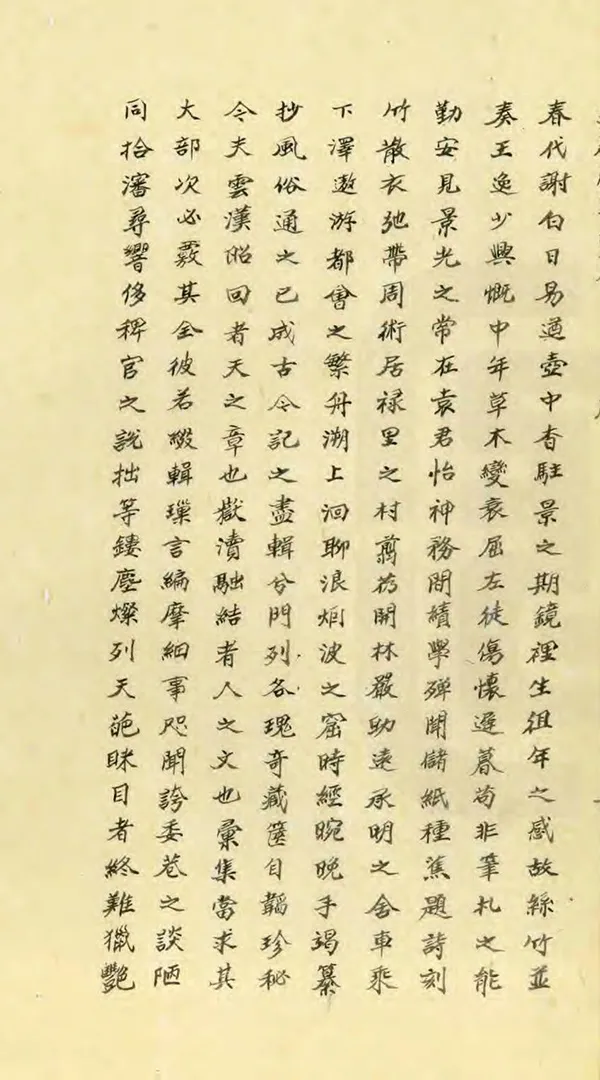 春代謝白日易遒壺中杳駐景之期鏡裡生徂年之感故絲竹並
奏王逸少興慨中年草木變衰屈左徒傷懷遲暮苟非筆札之能
勤安見景光之常在袁君怡神務閒績學殫聞儲紙種蕉題詩刻
竹散衣弛帶周術居祿里之村翦茷開林嚴助遠承明之舍車乘
下澤遨游都會之繁舟溯上洄聊浪烟波之窟時經晼晚手竭纂
抄風俗通之已成古今記之盡輯分門列各瑰奇藏篋自韜珍秘
今夫雲漢昭回者天之章也嶽瀆融結者人之文也彙集當求其
大部次必覈其全彼若綴輯璅言編摩細事咫聞誇委巷之談陋
同拾瀋尋響侈稗官之說拙等鏤塵燦列天葩眯目者終難獵艷